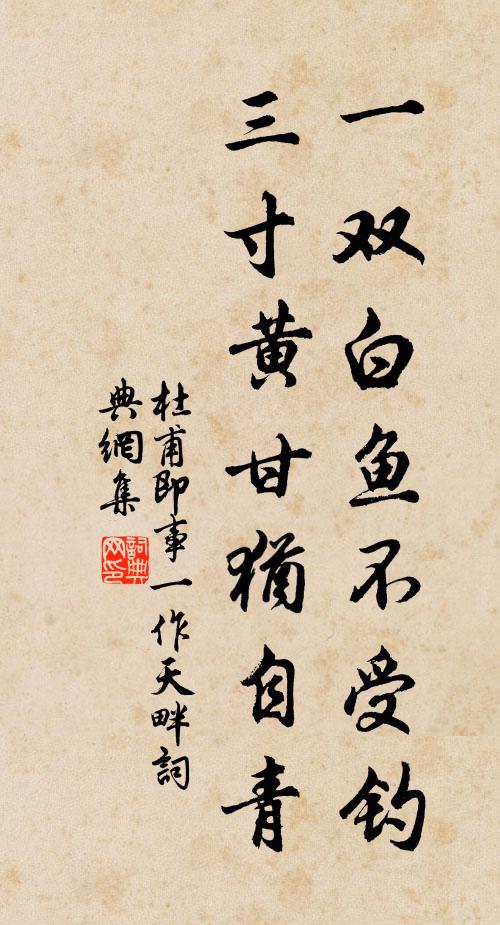 一双白鱼不受钓
三寸黄甘犹自青
杜甫即事一作天畔詞
典網集
詞典網印